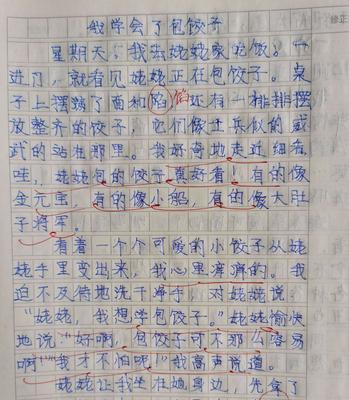 我学会了包饺子
星期天，我去姥姥家吃饭。一
进门，就看见姥姥正在包饺子。桌
子上摆满了面和馅馅还有一排排摆
放整齐的饺子，它们像士兵似的威
武的站在那里。我好奇地走近细看
哇，姥姥包的饺子真好看！有的像
金元宝，有的像小船，有的像大肚
子将军。
看着一个个可爱的小饺子从姥
姥手里变出来，我心里痒痒的。我
迫不及待地洗干净手，对姥姥说：
“姥姥，我想学包饺子。”姥姥愉快
地说：“好啊，包饺子可不那么容易
啊！”“我才不怕呢！”我高声说道。
姥姥让我坐在她身边，先拿了
修正